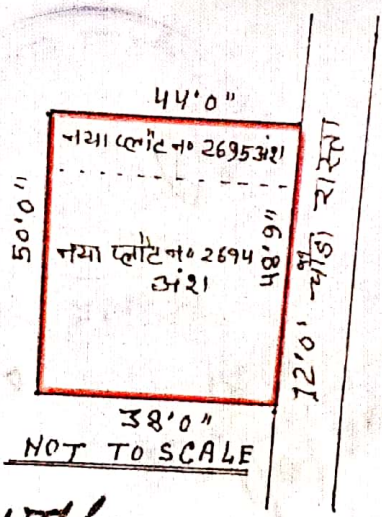 44'0"
नया प्लॉट न० 2695 अंश
50'0"
नया प्लॉट न० 2694
अंश
48'9"
12'0" चौड़ा रास्ता
38'0"
NOT TO SCALE